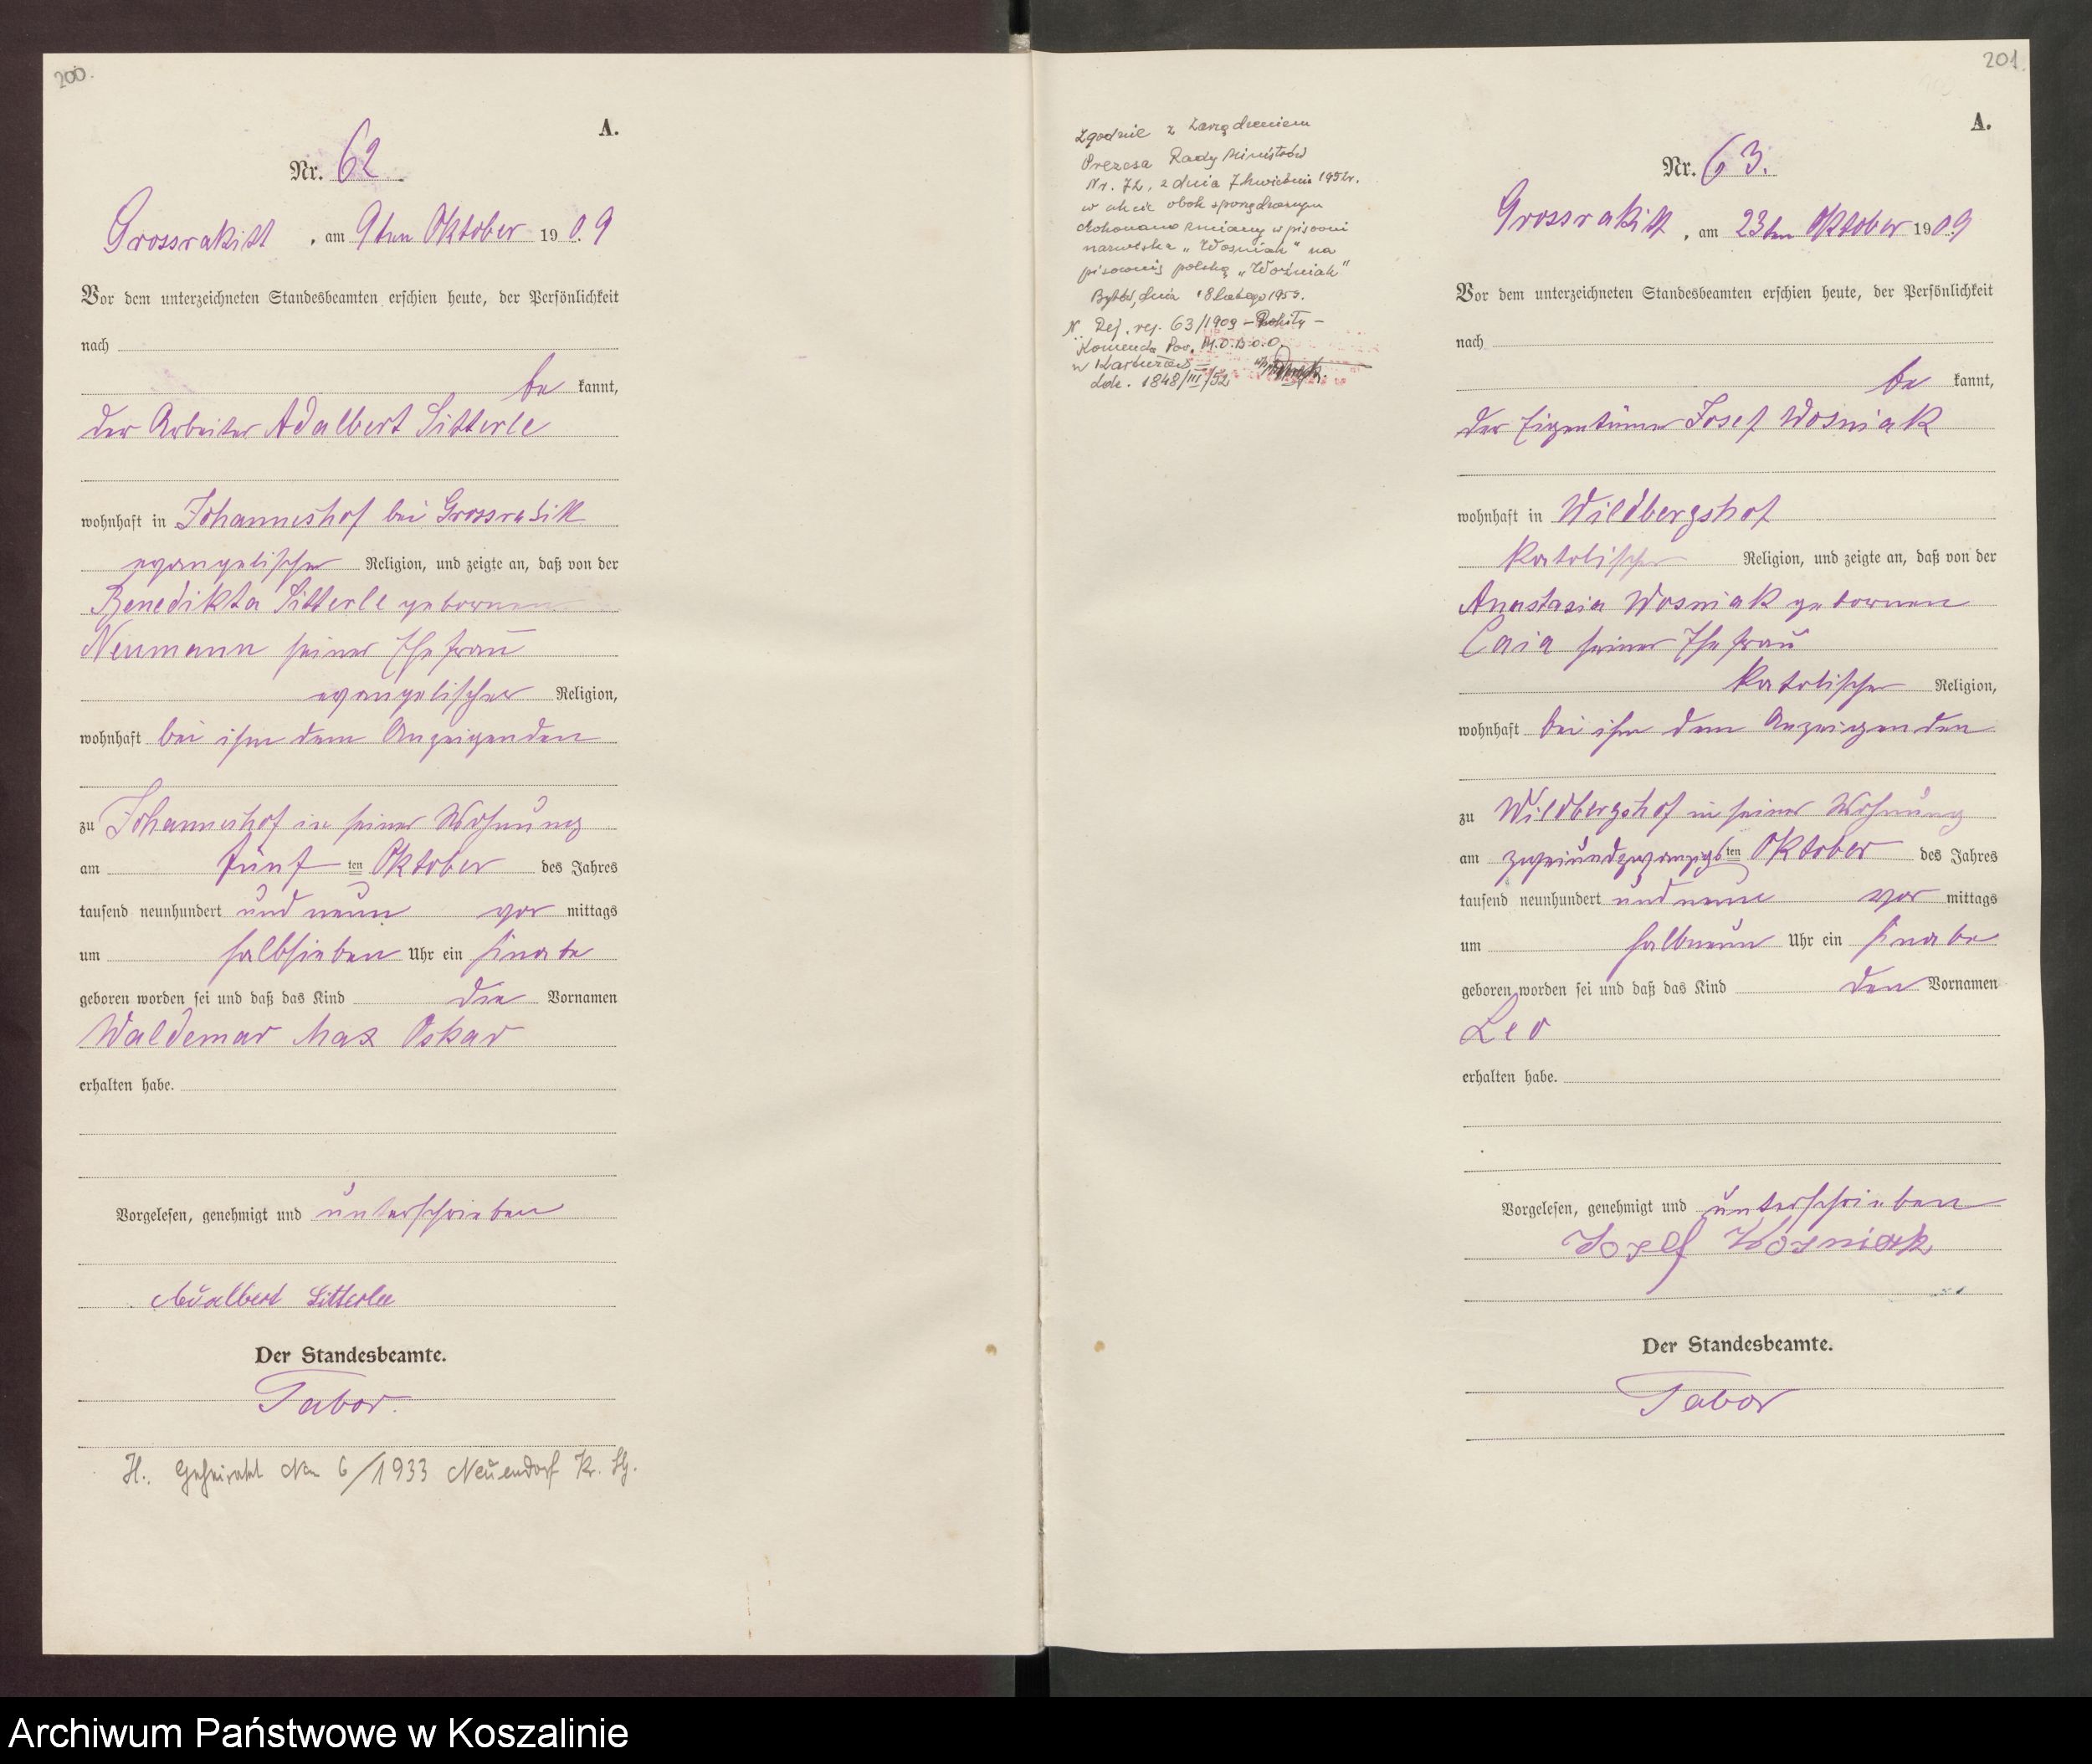 200.
A.
Nr. 62
Grossrakitt, am 9ten Oktober 1909
Vor dem unterzeichneten Standesbeamten erschien heute, der Persönlichkeit
nach
be kannt,
der Arbeiter Adalbert Sitterle
wohnhaft in Johanneshof bei Grossrakitt
evangelischer Religion, und zeigte an, daß von der
Benedikta Sitterle gebornen
Neumann seiner Ehefrau
evangelischer Religion,
wohnhaft bei ihm dem Anzeigenden
zu Johanneshof in seiner Wohnung
am fünf ten Oktober des Jahres
tausend neunhundert und neun vor mittags
um halbsieben Uhr ein Knabe
geboren worden sei und daß das Kind die Vornamen
Waldemar Max Oskar
erhalten habe.
Vorgelesen, genehmigt und unterschrieben
Adalbert Sitterle
Der Standesbeamte.
Tabor.
H. Geheiratet 6/1933 Neuendorf Kr.
201.
Zgodnie z Zarządzeniem
Prezesa Rady Ministrów
Nr. 72, z dnia 7 kwietnia 1952r.
w akcie obok sporządzonym
dokonano zmiany w pisowni
nazwiska „Wosniak" na
pisownię polską „Woźniak"
Bytów, dnia 18 lutego 1953.
N. Dej. rej. 63/1909 - Rokity -
Komenda Pow. M.O.
w Kartuzach
Ldz. 1848/III/52
A.
Nr. 63.
Grossrakitt, am 23ten Oktober 1909
Vor dem unterzeichneten Standesbeamten erschien heute, der Persönlichkeit
nach
be kannt,
der Eigentümer Josef Wosniak
wohnhaft in Wildbergshof
katolischer Religion, und zeigte an, daß von der
Anastasia Wosniak gebornen
Caia seiner Ehefrau
katolischer Religion,
wohnhaft bei ihm dem Anzeigenden
zu Wildbergshof in seiner Wohnung
am zweiundzwanzigs ten Oktober des Jahres
tausend neunhundert und neun vor mittags
um halbneun Uhr ein Knabe
geboren worden sei und daß das Kind den Vornamen
Leo
erhalten habe.
Vorgelesen, genehmigt und unterschrieben
Josef Wosniak
Der Standesbeamte.
Tabor
Archiwum Państwowe w Koszalinie